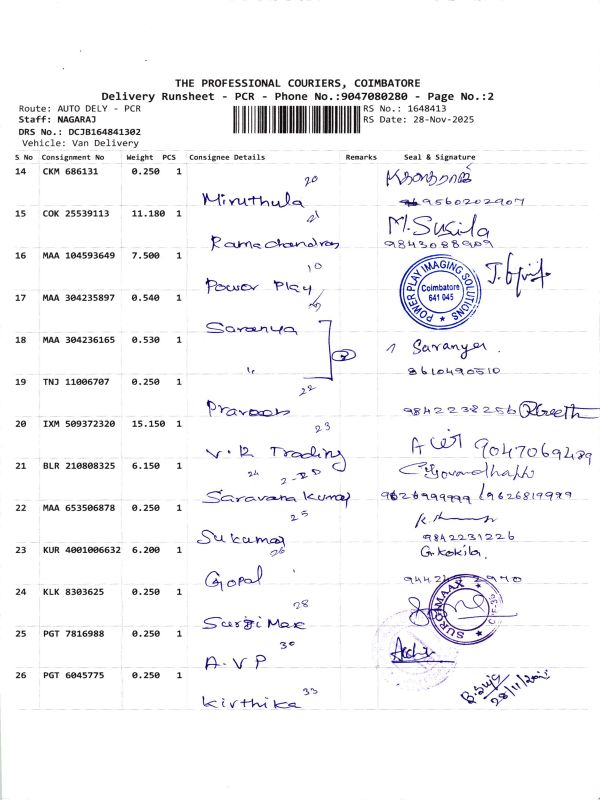 THE PROFESSIONAL COURIERS, COIMBATORE
Delivery Runsheet - PCR - Phone No.:9047080280 - Page No.:2
Route: AUTO DELY - PCR
RS No.: 1648413
Staff: NAGARAJ
RS Date: 28-Nov-2025
DRS No.: DCJB164841302
Vehicle: Van Delivery
S No Consignment No Weight PCS Consignee Details Remarks Seal & Signature
14 CKM 686131 0.250 1
20
Miruthula
9560202907
15 COK 25539113 11.180 1
21
M. Susila
Ramachandran
9843088909
16 MAA 104593649 7.500 1
10
Power Play
POWER PLAY IMAGING SOLUTIONS
Coimbatore
641 045
17 MAA 304235897 0.540 1
Saranya
18 MAA 304236165 0.530 1
2
Saranya.
"
8610490510
19 TNJ 11006707 0.250 1
22
Praveen
9842238256
20 IXM 509372320 15.150 1
23
V.R Trading
9047069489
21 BLR 210808325 6.150 1
24
Saravana Kumar
9626999999 / 9626819999
22 MAA 653506878 0.250 1
25
Sukumar
9842231226
23 KUR 4001006632 6.200 1
26
G. Kokila.
Gopal
24 KLK 8303625 0.250 1
28
SUROJMAAX
25 PGT 7816988 0.250 1
30
A.V.P
26 PGT 6045775 0.250 1
33
Kirthika